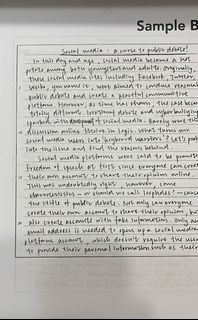 Sample B
Social media : a curse to public debate?
In this day and age, social media became a hot
potato among both youngsters and adults. Originally,
these social media sites including Facebook, Twitter,
you name it, were aimed to conduce reasonable
public debate and create a peaceful communicative
platform. However, as time has shown, the case became
totally different. Irrational debate and cyberbullying
sparked with social media. Rarely were the
discussion online thrive in logic. What turns our
social media users into 'keyboard warriors'? Let's
into the issue and find the reasons behind
Social media platforms were said to be
freedom of speech at first since everyone can create
their own account to share their opinion online.
This was undoubtedly right however some
characteristics - or should we call loopholes? - cause
the stifle of public debate. Not only can everyone
create their own account to share their opinion, but
also create accounts with fake information. Only an
email address is needed to open up a social media
platforms account, which doesn't require the user
to provide their personal information such as their